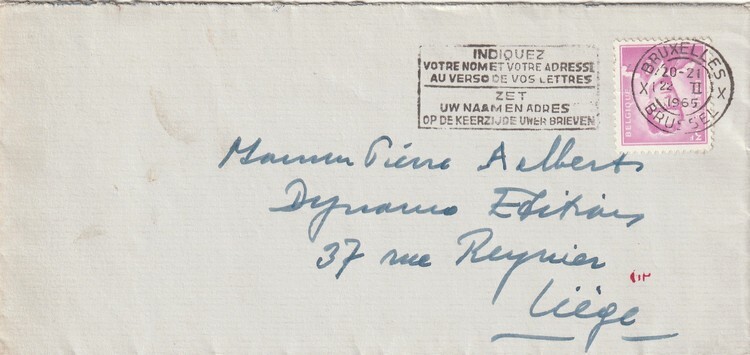 INDIQUEZ
VOTRE NOM ET VOTRE ADRESSE
AU VERSO DE VOS LETTRES
ZET
UW NAAM EN ADRES
OP DE KEERZIJDE UWER BRIEVEN
BRUXELLES
20-21
X 22 II X
1965
BRUSSEL
BELGIQUE
Monsieur Pierre Aelberts
Dynamo Editions
37 rue Reynier
Liège